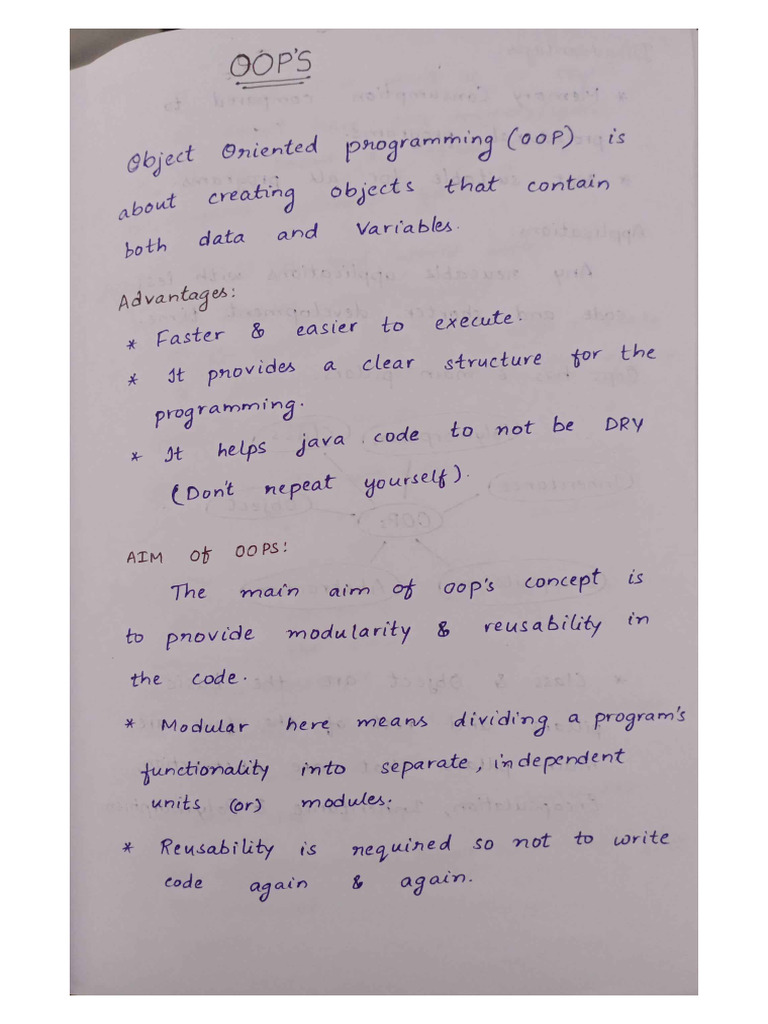 OOP'S
Object Oriented programming (OOP) is
about creating objects that contain
both data and Variables.
Advantages:
* Faster & easier to execute.
* It provides a clear structure for the
programming.
* It helps java code to not be DRY
(Don't repeat yourself).
AIM of OOPS:
The main aim of oop's concept is
to provide modularity & reusability in
the code.
* Modular here means dividing a program's
functionality into separate, independent
units (or) modules.
* Reusability is required so not to write
code again & again.